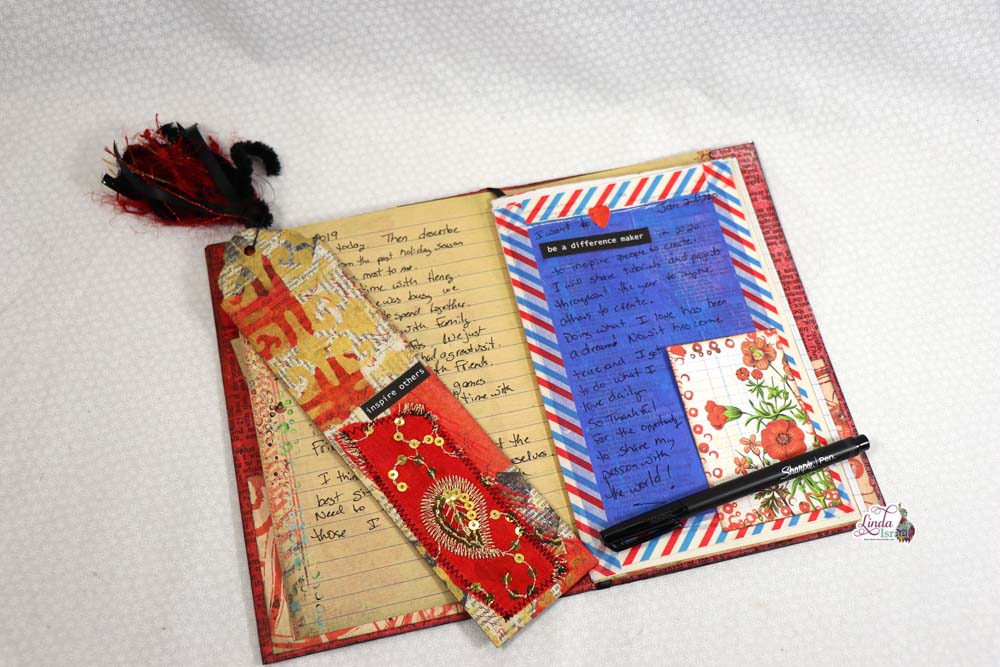 2019
today. Then describe
from the past holiday season
most to me.
time with Henry
was busy we
to spend together.
with Family
We just
had a great visit.
with Friends.
games
time with
the
I think
best
Need to
those I
inspire others
Jan
I want to
be a difference maker
in 2020
to inspire people to create.
I will share tutorials and projects
throughout the year to inspire
others to create.
Doing what I love has been
a dream! Now it has come
true and I get
to do what I
love daily
So Thankful
for the opportunity
to share my
passion with
the world!
Sharpie Pen
Linda
Israel